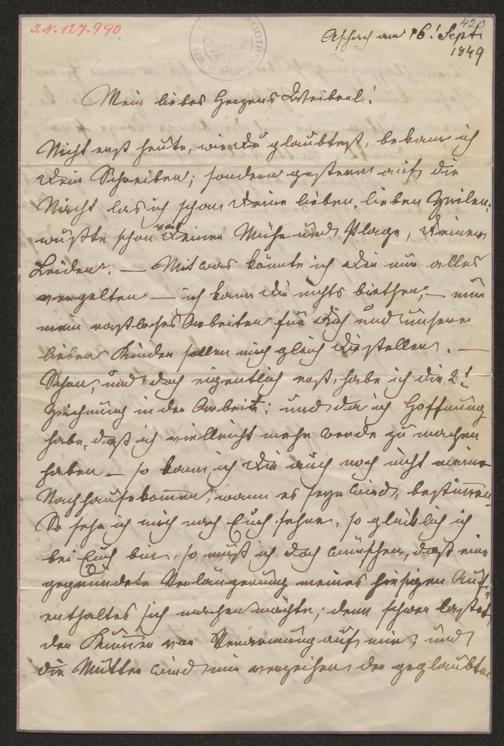 I.N. 127.990
420
Aschach am 16! Sept.
1849
Mein liebes Herzens Weiberl!
Nicht erst heute, wie du glaubtest, bekam ich
Dein Schreiben; sondern gestern auf die
Nacht las ich schon Deine lieben, lieben Zeilen;
wußte schon von Deiner Mühe und Plage, Deinen
Leiden. — Mit was könnte ich Dir nur alles
vergelten — ich kann Dir nichts biethen, — nur
mein rastloses Arbeiten für Dich und unsere
lieben Kinder sollen mich gleich Dir stellen. —
Schon, und doch eigentlich erst, habe ich die 2!
Zeichnung in der Arbeit; und da ich Hoffnung
habe, daß ich vielleicht mehr werde zu machen
haben — so kann ich Dir auch noch nicht meine
Nachhausekommen, wann es seyn wird, bestimmen.
So sehr ich mich nach Euch sehne, so glücklich ich
bei Euch bin, so muß ich doch wünschen, daß eine
gegründete Verlängerung meines hiesigen Auf-
enthaltes sich machen möchte; denn schwer lastet
der Kummer vor Verarmung auf mir, und
die Mutter wird mir verzeihen der geglaubten